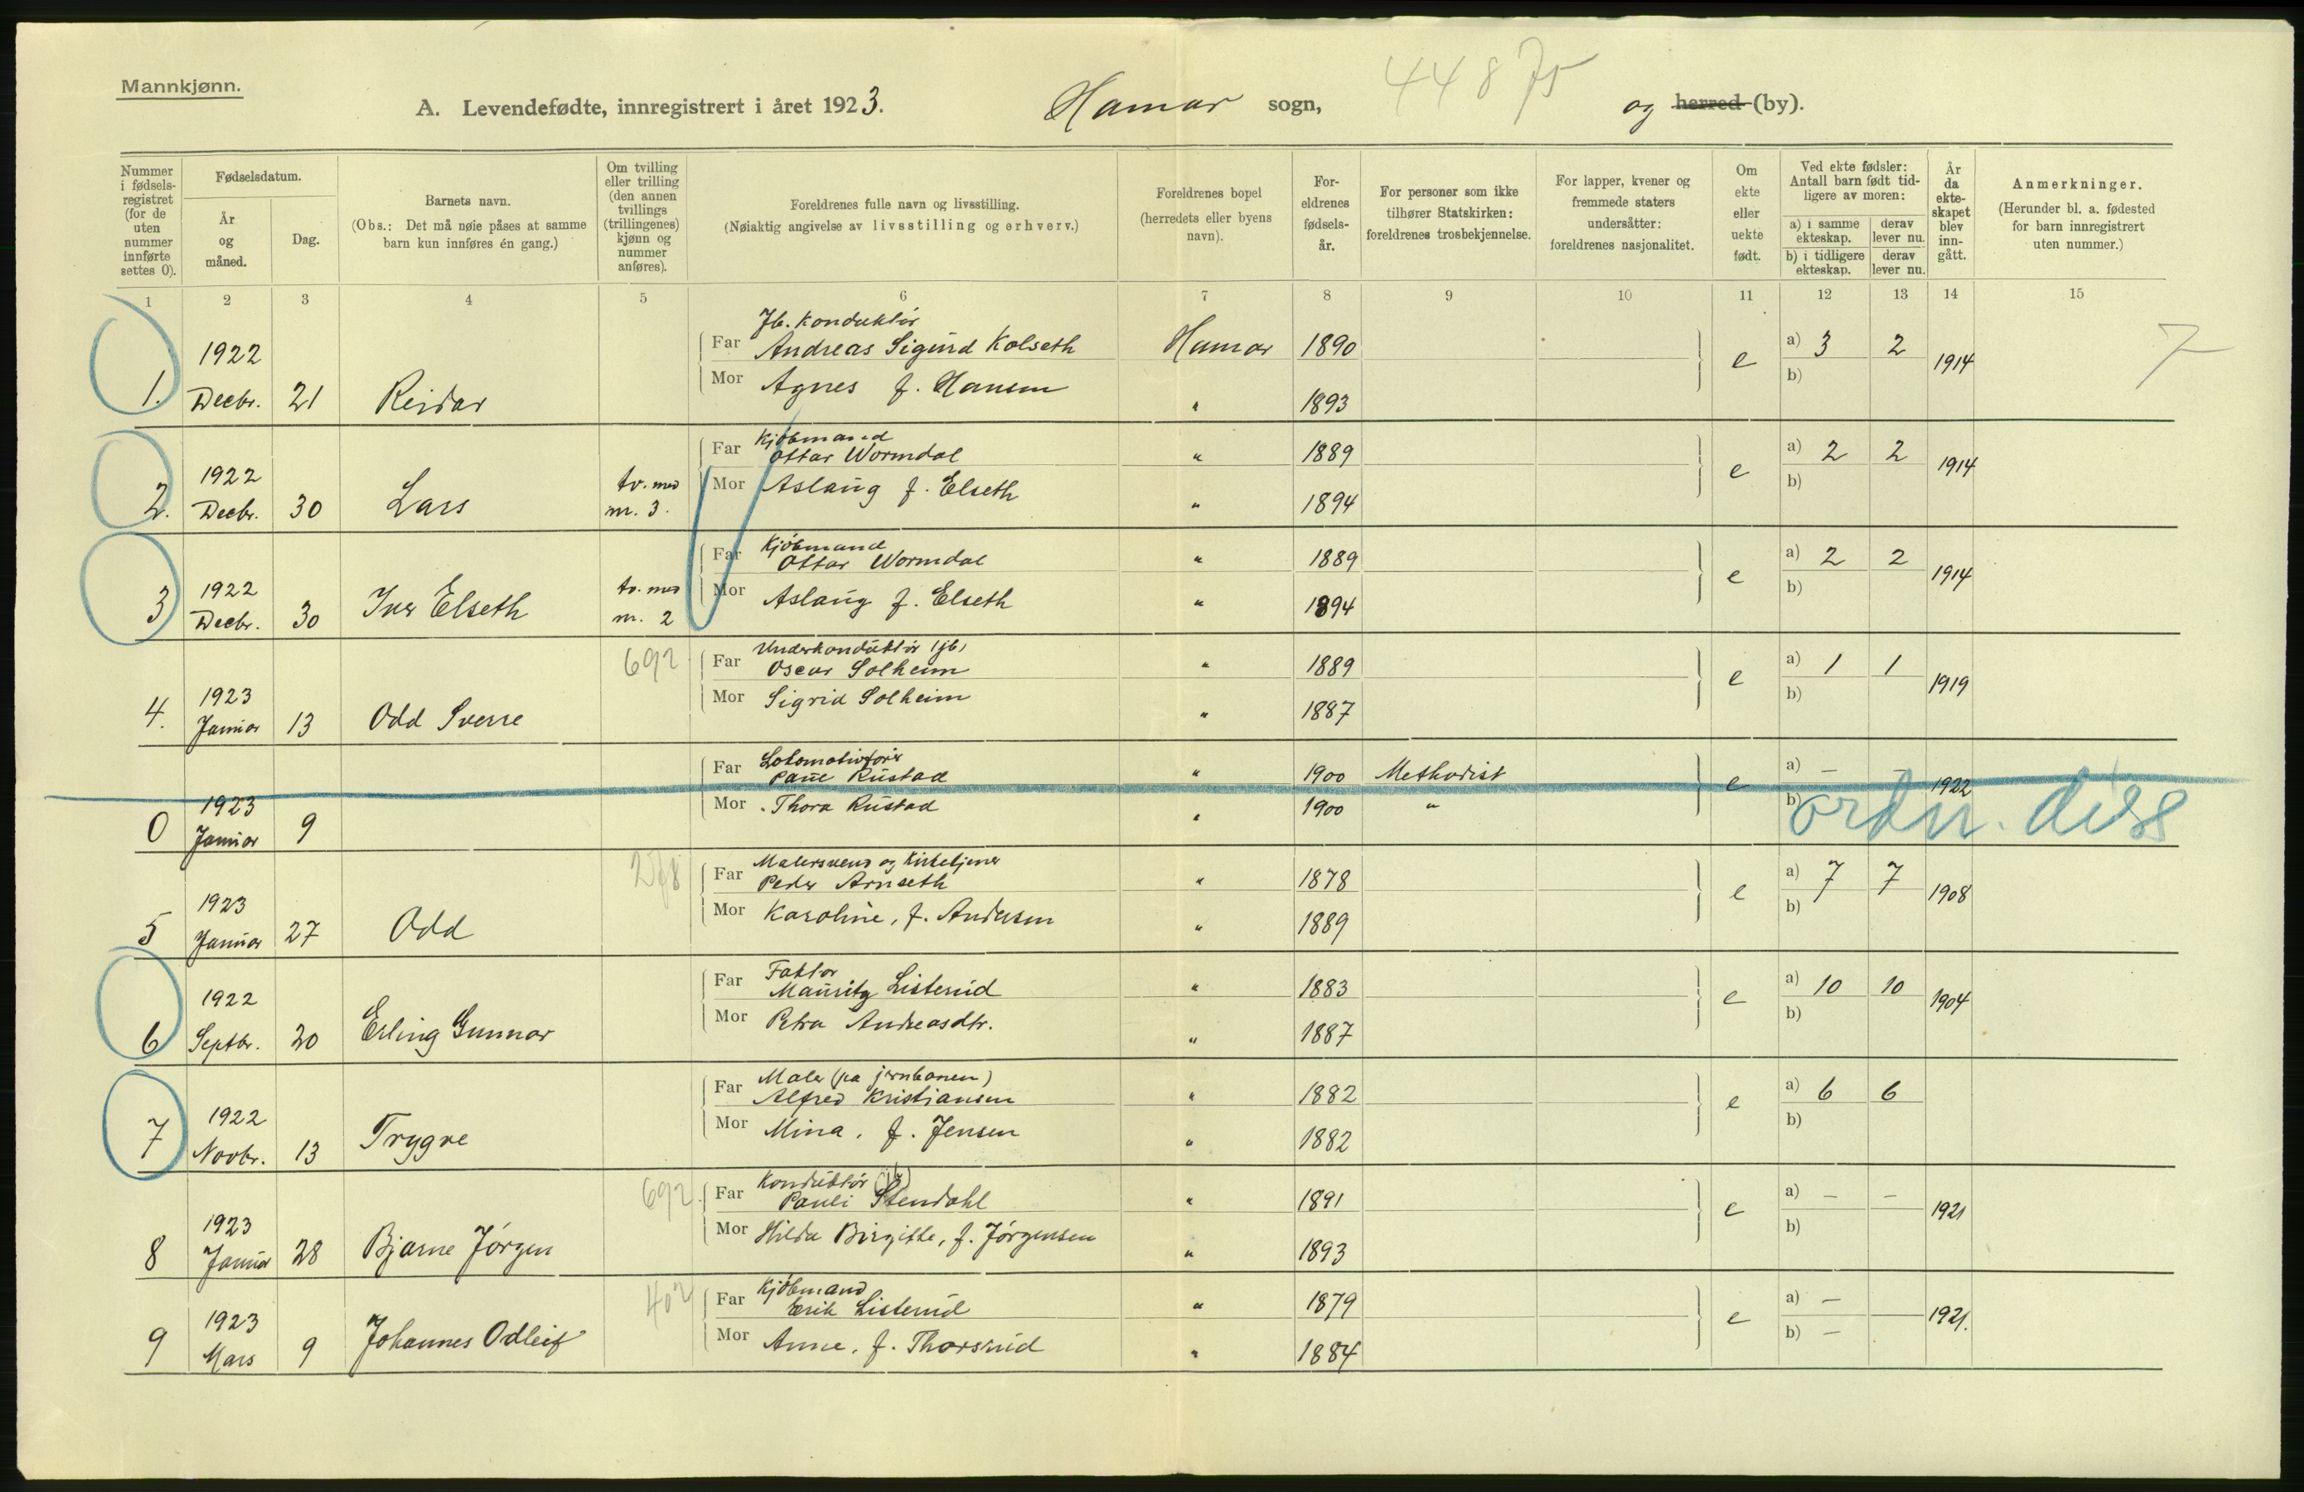 Mannkjønn.
A. Levendefødte, innregistrert i året 1923. Hamar sogn, 44875 og herred (by).
Nummer i fødsels-registret (for de uten nummer innførte settes 0).
Fødselsdatum.
År og måned.
Dag.
Barnets navn.
(Obs.: Det må nøie påses at samme barn kun innføres én gang.)
Om tvilling eller trilling (den annen tvillings (trillingenes) kjønn og nummer anføres).
Foreldrenes fulle navn og livsstilling.
(Nøiaktig angivelse av livsstilling og erhverv.)
Foreldrenes bopel (herredets eller byens navn).
For-eldrenes fødsels-år.
For personer som ikke tilhører Statskirken: foreldrenes trosbekjennelse.
For lapper, kvener og fremmede staters undersåtter: foreldrenes nasjonalitet.
Om ekte eller uekte født.
Ved ekte fødsler: Antall barn født tid-ligere av moren:
a) i samme ekteskap. derav lever nu.
b) i tidligere ekteskap. derav lever nu.
År da ekte-skapet blev inn-gått.
Anmerkninger.
(Herunder bl. a. fødested for barn innregistrert uten nummer.)
1 2 3 4 5 6 7 8 9 10 11 12 13 14 15
Jb. Konduktør
1922 Far Andreas Sigurd Kolseth Hamar 1890 e a) 3 2 1914 7
1. Decbr. 21 Reidar Mor Agnes f. Hansen " 1893 b)
Kjøbmand
1922 tv. med Far Ottar Wormdal " 1889 e a) 2 2 1914
2. Decbr. 30 Lars nr. 3. Mor Aslaug f. Elseth " 1894 b)
Kjöbmand
1922 tv. med Far Ottar Wormdal " 1889 e a) 2 2 1914
3 Decbr. 30 Iver Elseth nr. 2 Mor Aslaug f. Elseth " 1894 b)
Underkonduktör (jb)
1923 692 Far Oscar Solheim " 1889 e a) 1 1 1919
4. Januar 13 Odd Sverre Mor Sigrid Solheim " 1887 b)
Lokomotivfører
Far Paul Rustad " 1900 Methodist e a) — — 1922
1923 Mor Thora Rustad " 1900 " b) ordn. diss
0 Januar 9
Malersvend og Kirketjener
1923 Far Peder Arnseth " 1878 e a) 7 7 1908
5 Januar 27 Odd Mor Karoline, f. Andersen " 1889 b)
Faktor
1922 Far Mauritz Listerud " 1883 e a) 10 10 1904
6 Septbr. 20 Erling Gunnar Mor Petra Andreasdtr. " 1887 b)
Maler (pa jernbanen)
1922 Far Alfred Kristiansen " 1882 e a) 6 6
7 Novbr. 13 Trygve Mor Mina, f. Jensen " 1882 b)
Konduktör
1923 692 Far Pauli Stendahl " 1891 e a) — — 1921
8 Januar 28 Bjarne Jörgen Mor Hilda Birgitte, f. Jörgensen " 1893 b)
Kjöbmand
1923 402 Far Erik Listerud " 1879 e a) — — 1921.
9 Mars 9 Johannes Odleif Mor Anne, f. Thorsrud " 1884 b) —